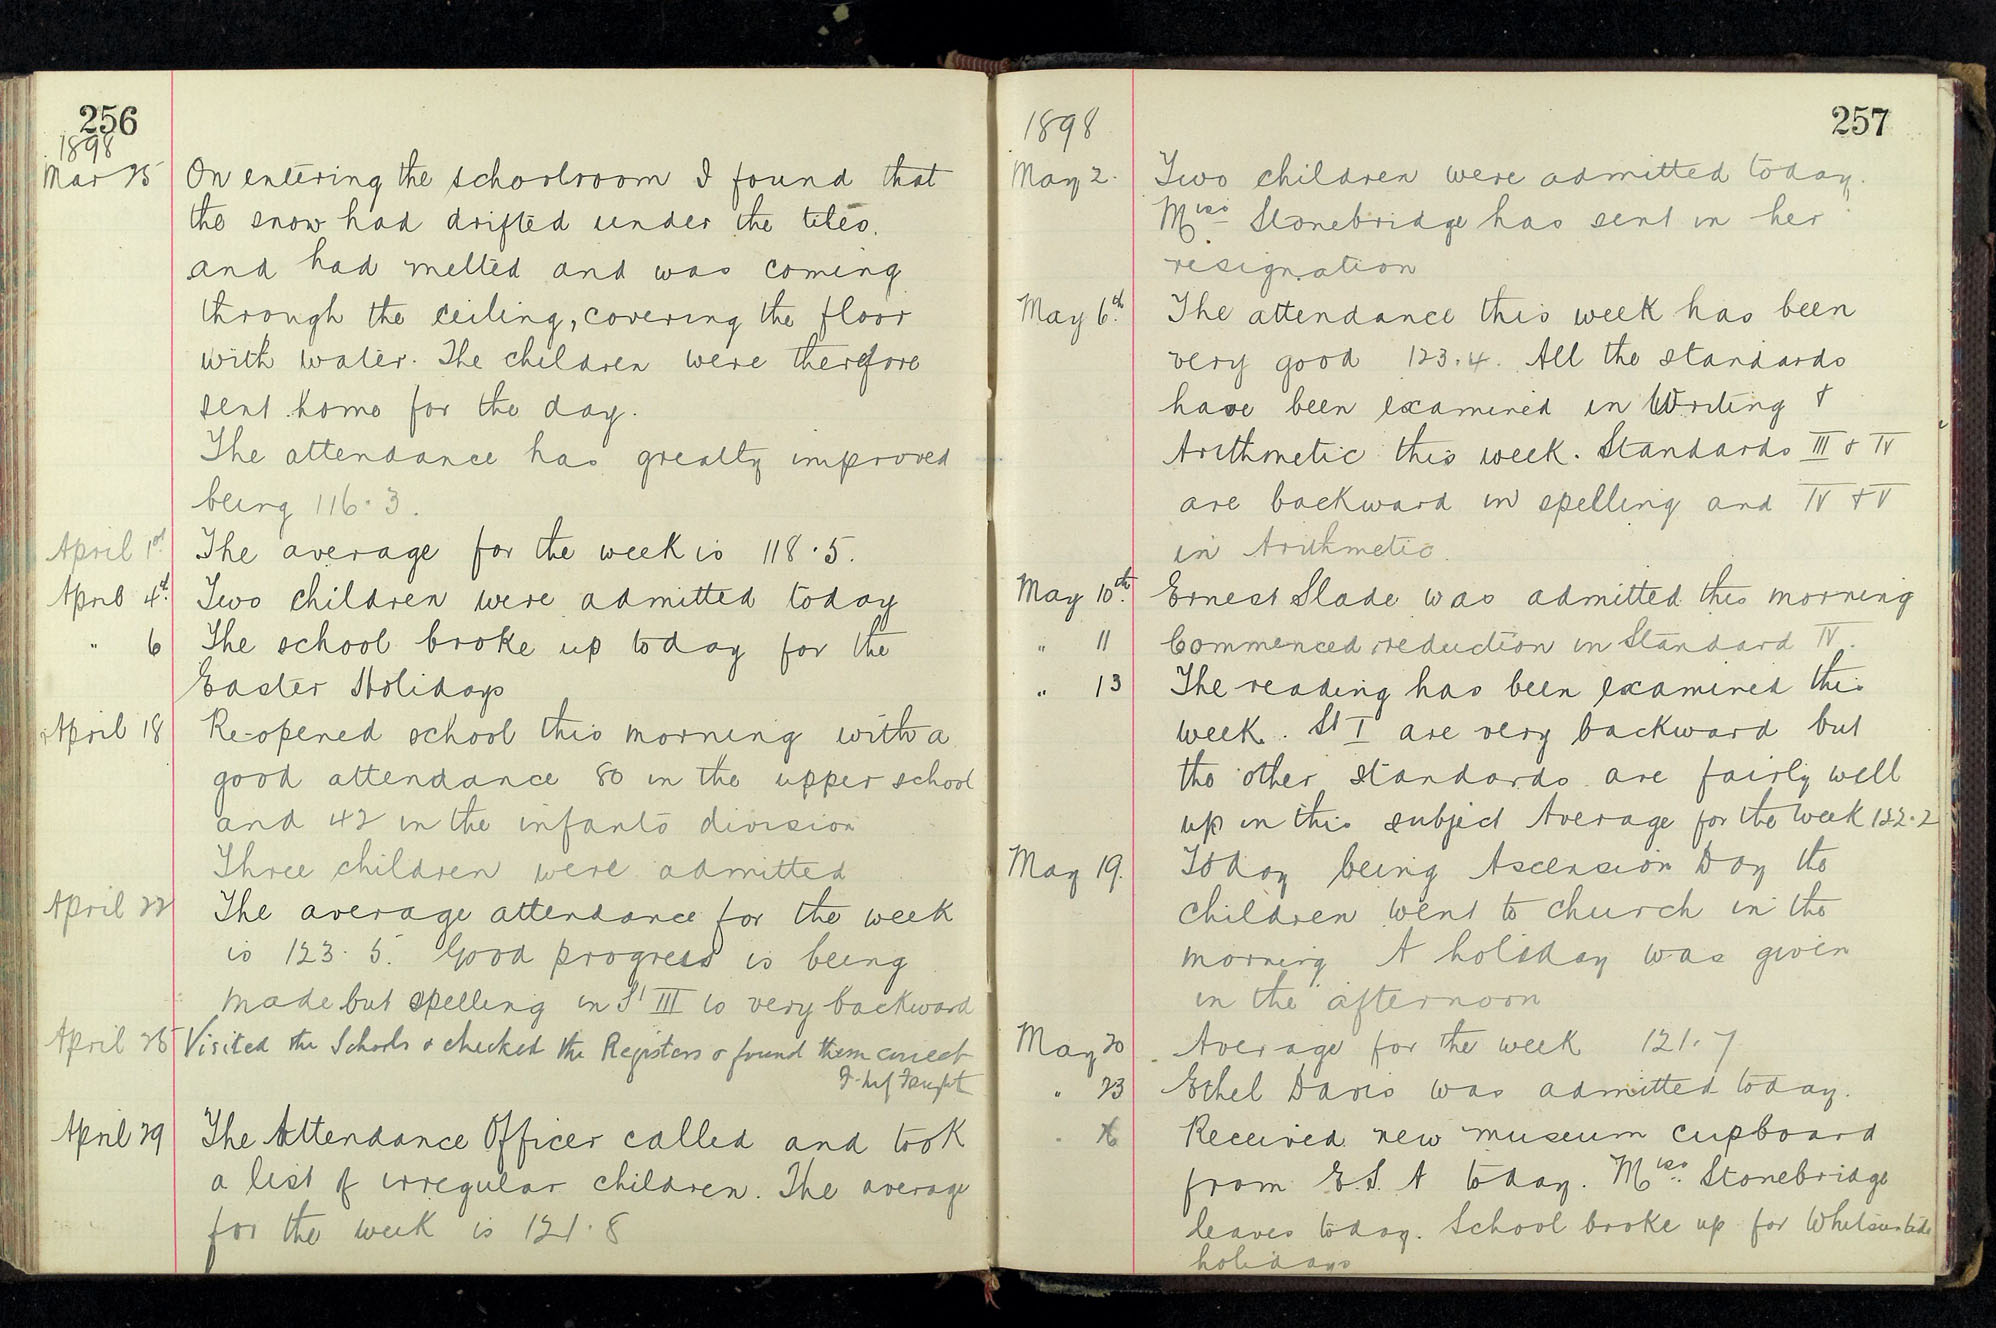 256
1898
Mar 25 On entering the schoolroom I found that
the snow had drifted under the tiles.
and had melted and was coming
through the ceiling, covering the floor
with water. The children were therefore
sent home for the day.
The attendance has greatly improved
being 116.3.
April 1st The average for the week is 118.5.
April 4th Two children were admitted today
" 6 The school broke up today for the
Easter Holidays
April 18 Re-opened school this morning with a
good attendance 80 in the upper school
and 42 in the infants division
Three children were admitted
April 22 The average attendance for the week
is 123.5. Good progress is being
made but spelling in St III is very backward
April 25 Visited the Schools & checked the Registers & found them correct
April 29 The Attendance Officer called and took
a list of irregular children. The average
for the week is 121.8
257
1898
May 2. Two children were admitted today.
Miss Stonebridge has sent in her
resignation
May 6th. The attendance this week has been
very good 123.4. All the standards
have been examined in Writing &
Arithmetic this week. Standards III & IV
are backward in spelling and IV & V
in Arithmetic.
May 10th. Ernest Slade was admitted this morning
" 11 Commenced reduction in Standard IV.
" 13 The reading has been examined this
week. St I are very backward but
the other standards are fairly well
up in this subject Average for the week 122.2
May 19. Today being Ascension Day the
children went to church in the
morning A holiday was given
in the afternoon
May 20 Average for the week 121.7
" 23 Ethel Davis was admitted today.
Received new museum cupboard
from E.S.A today. Miss. Stonebridge
leaves today. School broke up for Whitsuntide
holidays